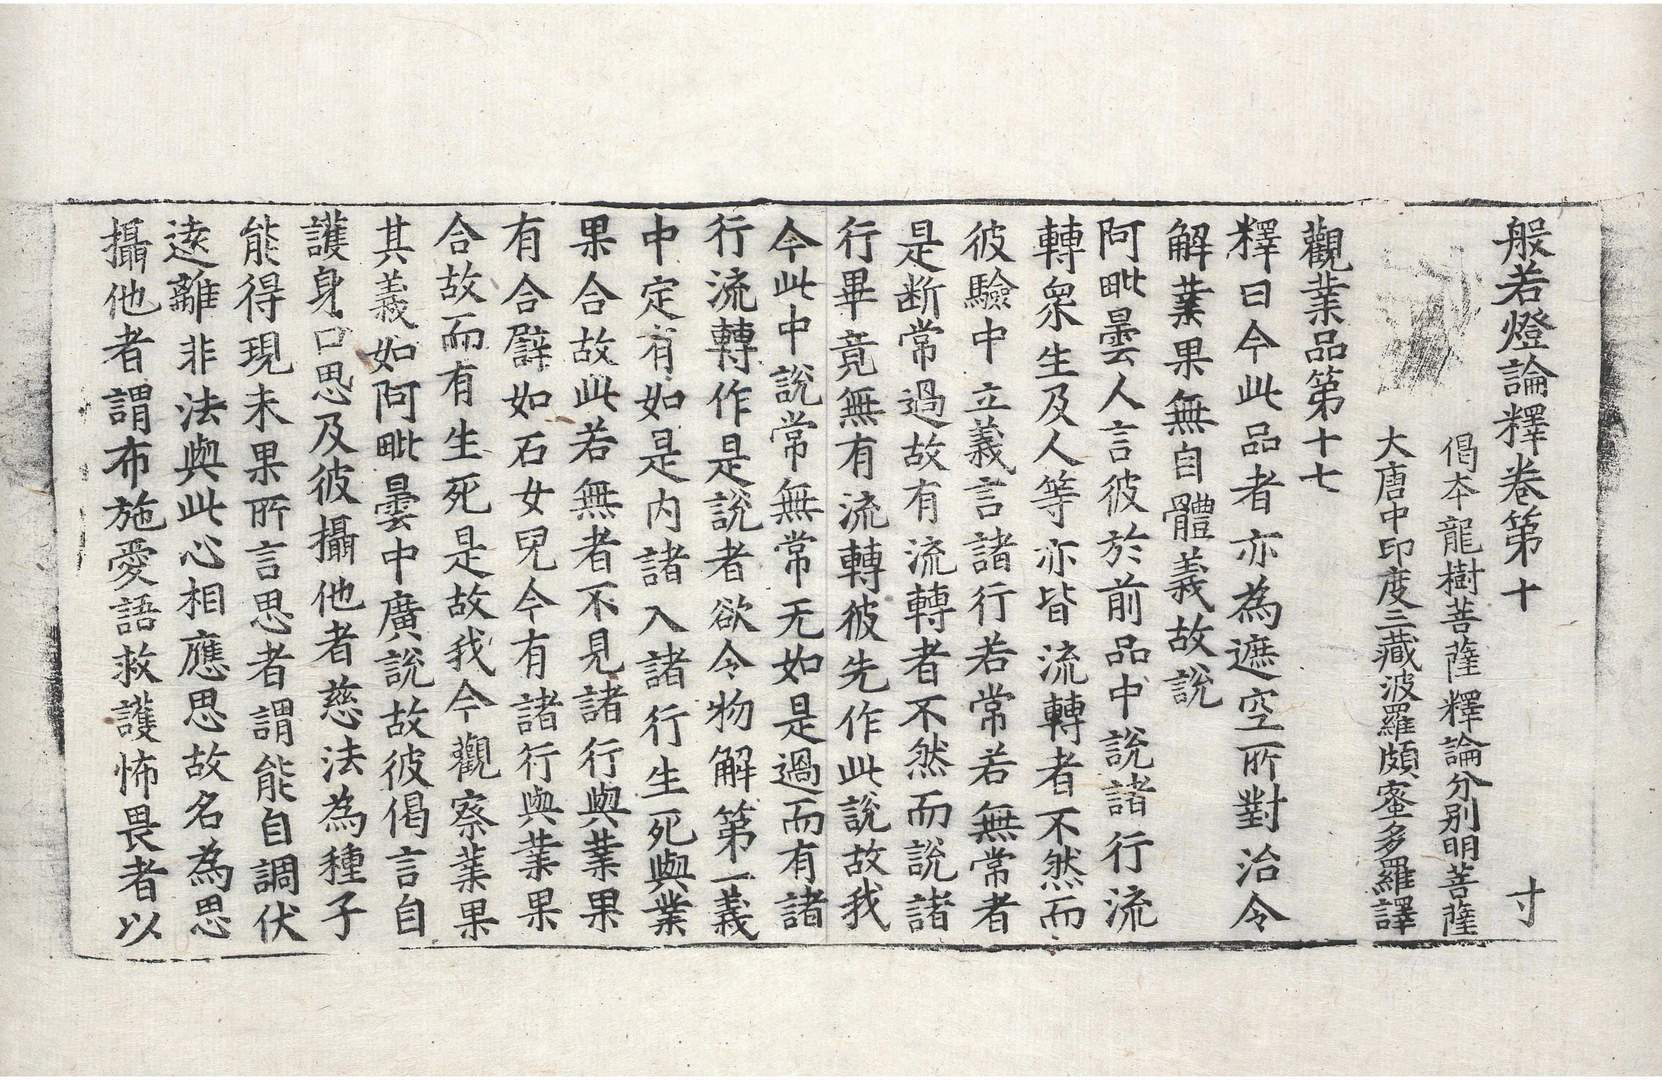 般若燈論釋卷第十 寸
偈本龍樹菩薩釋論分別明菩薩
大唐中印度三藏波羅頗蜜多羅譯
觀業品第十七
釋曰今此品者亦為遮空所對治令
解業果無自體義故說
阿毗曇人言彼於前品中說諸行流
轉衆生及人等亦皆流轉者不然而
彼驗中立義言諸行若常若無常者
是断常過故有流轉者不然而說諸
行畢竟無有流轉彼先作此說故我
今此中說常無常无如是過而有諸
行流轉作是說者欲令物解第一義
中定有如是内諸入諸行生死與業
果合故此若無者不見諸行與業果
有合譬如石女兒今有諸行與業果
合故而有生死是故我今觀察業果
其義如阿毗曇中廣說故彼偈言自
護身口思及彼攝他者慈法為種子
能得現未果所言思者謂能自調伏
逺離非法與此心相應思故名為思
攝他者謂布施愛語救護怖畏者以